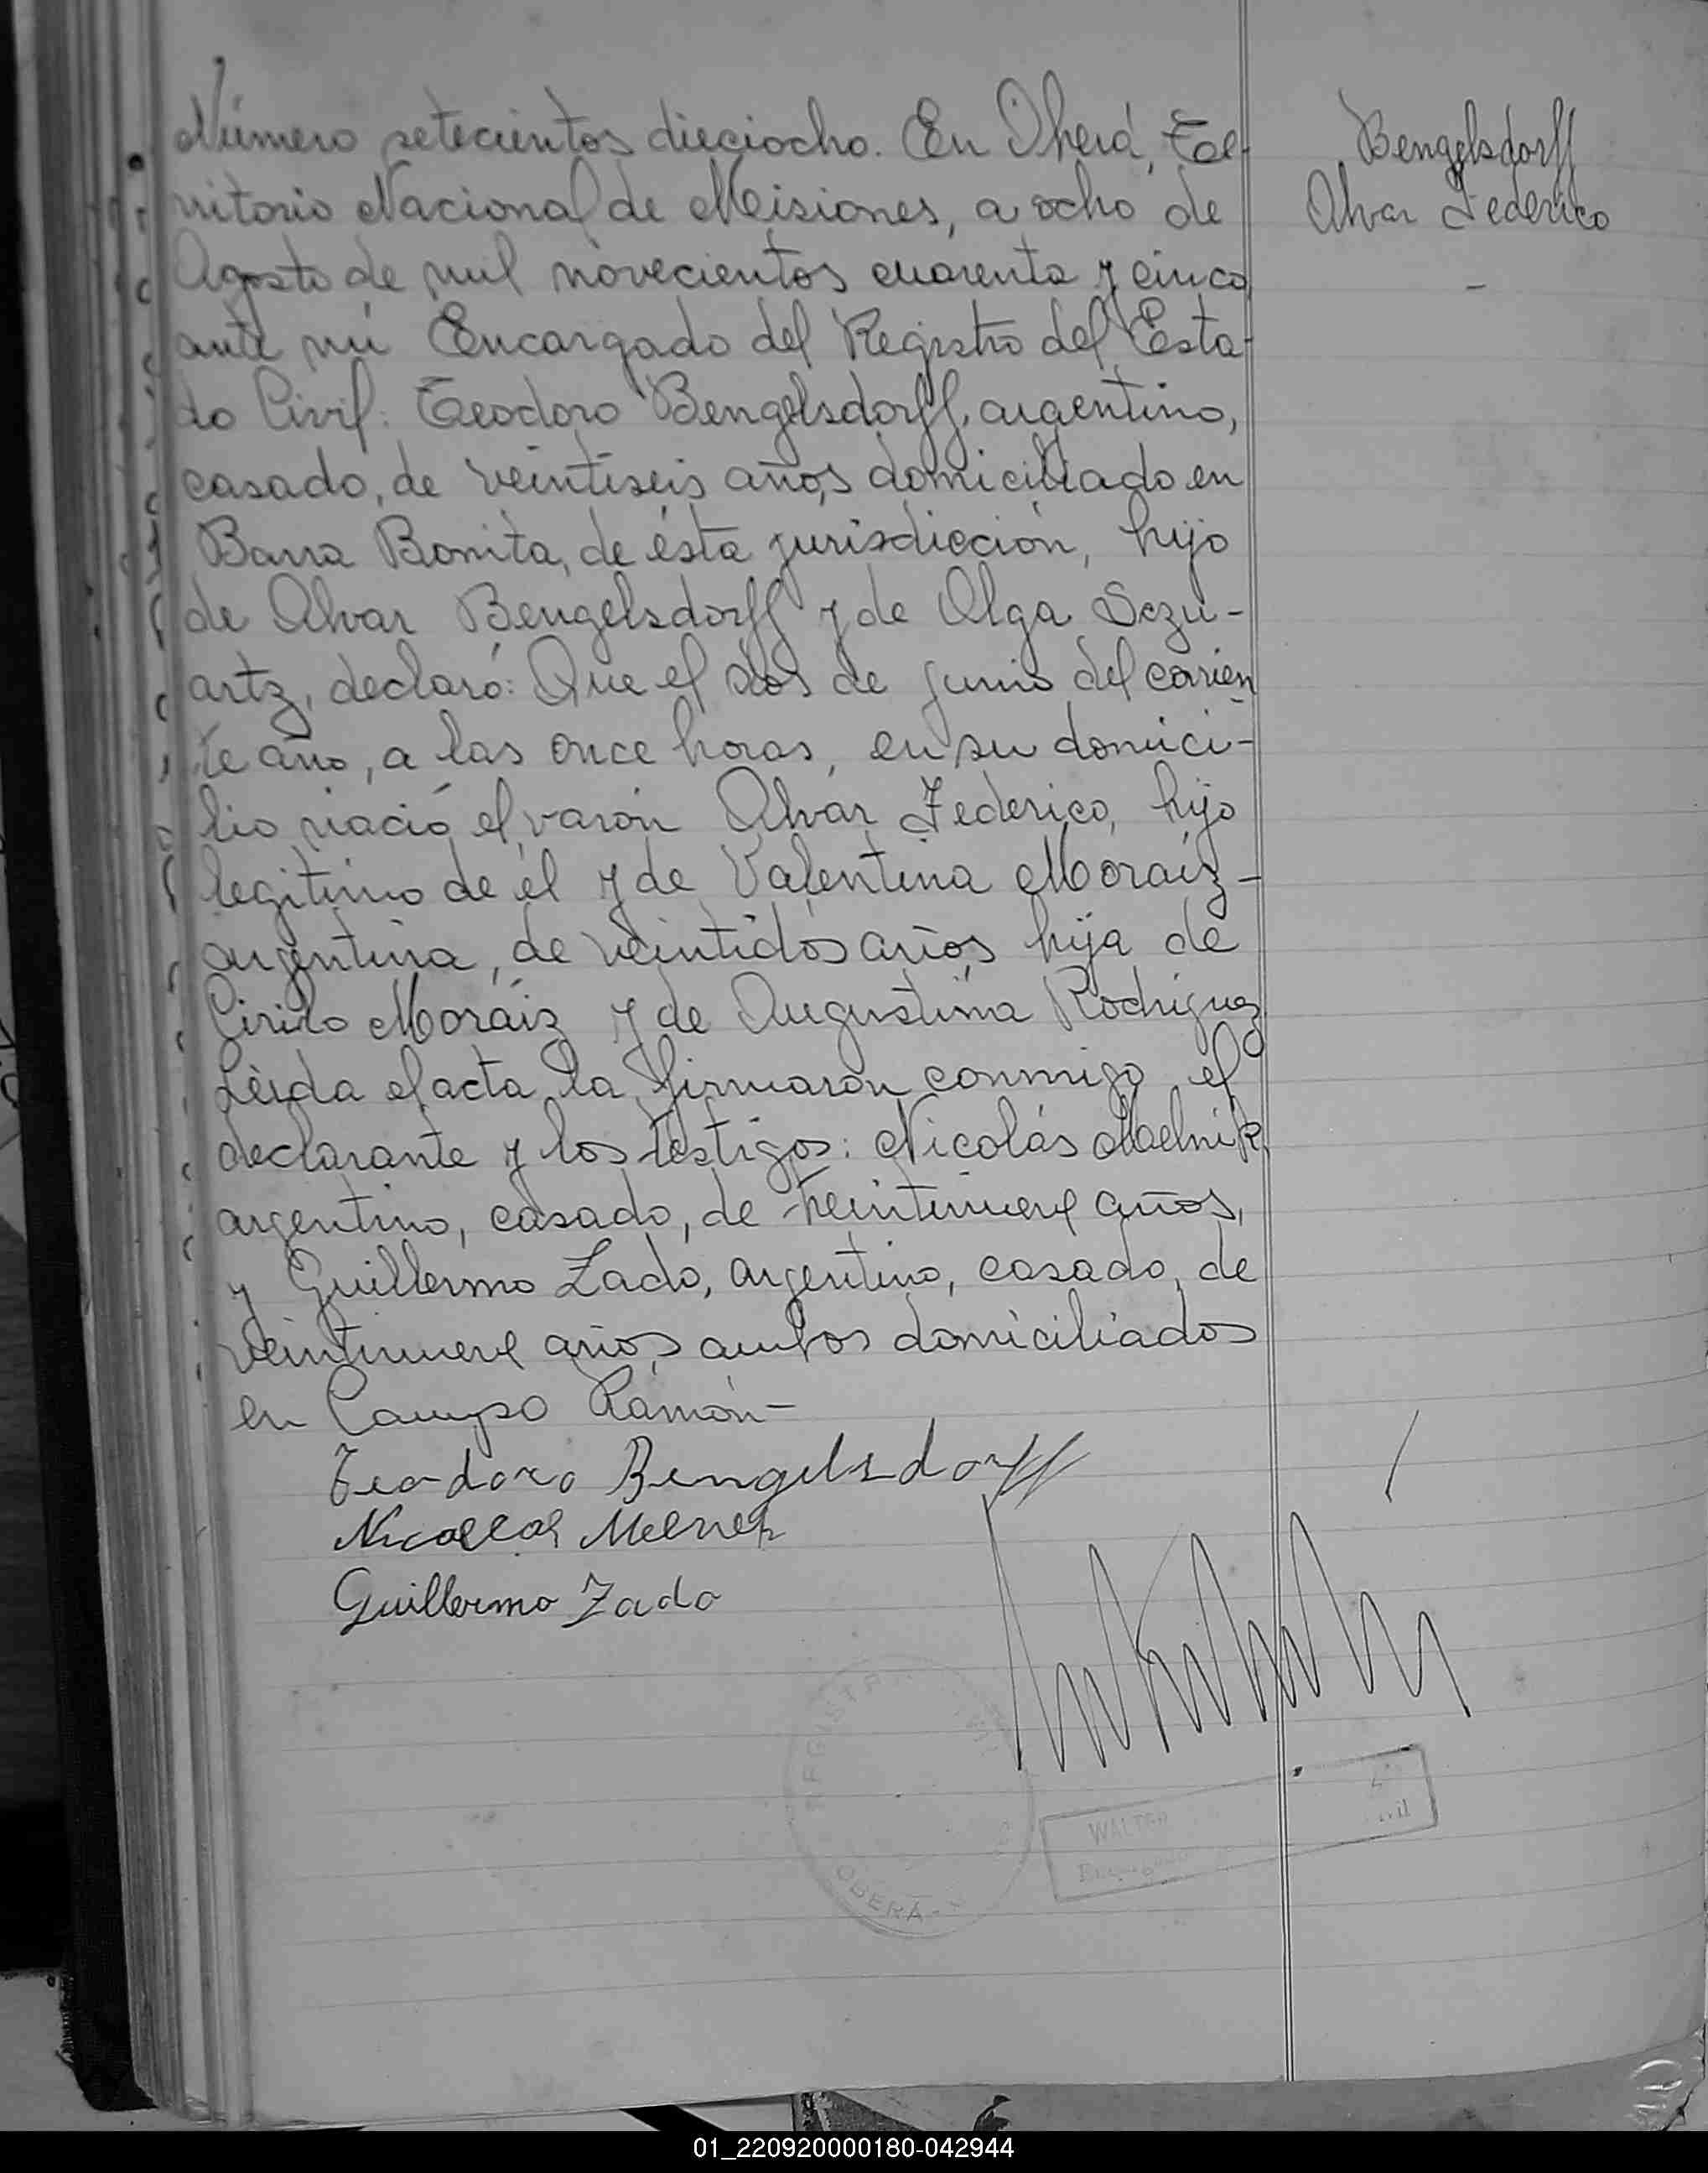 Número setecientos dieciocho. En Oberá, Te-
rritorio Nacional de Misiones, a ocho de
Agosto de mil novecientos cuarenta y cinco
ante mi Encargado del Registro del Esta-
do Civil: Teodoro Bengelsdorff, argentino,
casado, de veintiseis años, domiciliado en
Barra Bonita, de ésta jurisdicción, hijo
de Alvar Bengelsdorff y de Olga Sczu-
artz, declaró: Que el dos de junio del corrien
te año, a las once horas, en su domici-
lio nació el varón Alvar Federico, hijo
legitimo de él y de Valentina Moraiz-
argentina, de veintidós años, hija de
Cirilo Moráiz y de Augustina Rodriguez
Leida el acta la firmaron conmigo el
declarante y los testigos: Nicolás Maelnik,
argentino, casado, de treintinueve años,
y Guillermo Zado, argentino, casado, de
veintinueve años, ambos domiciliados
en Campo Ramón-
Teodoro Bengelsdorff
Melnek
Guillermo Zado
Bengelsdorff
Alvar Federico
-
OBERÁ
WALTER
01_220920000180-042944